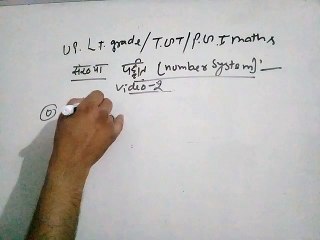 UP. LT. grade/T.G.T/P.G.T maths
संख्या पद्धति (number system):-
video-2
①